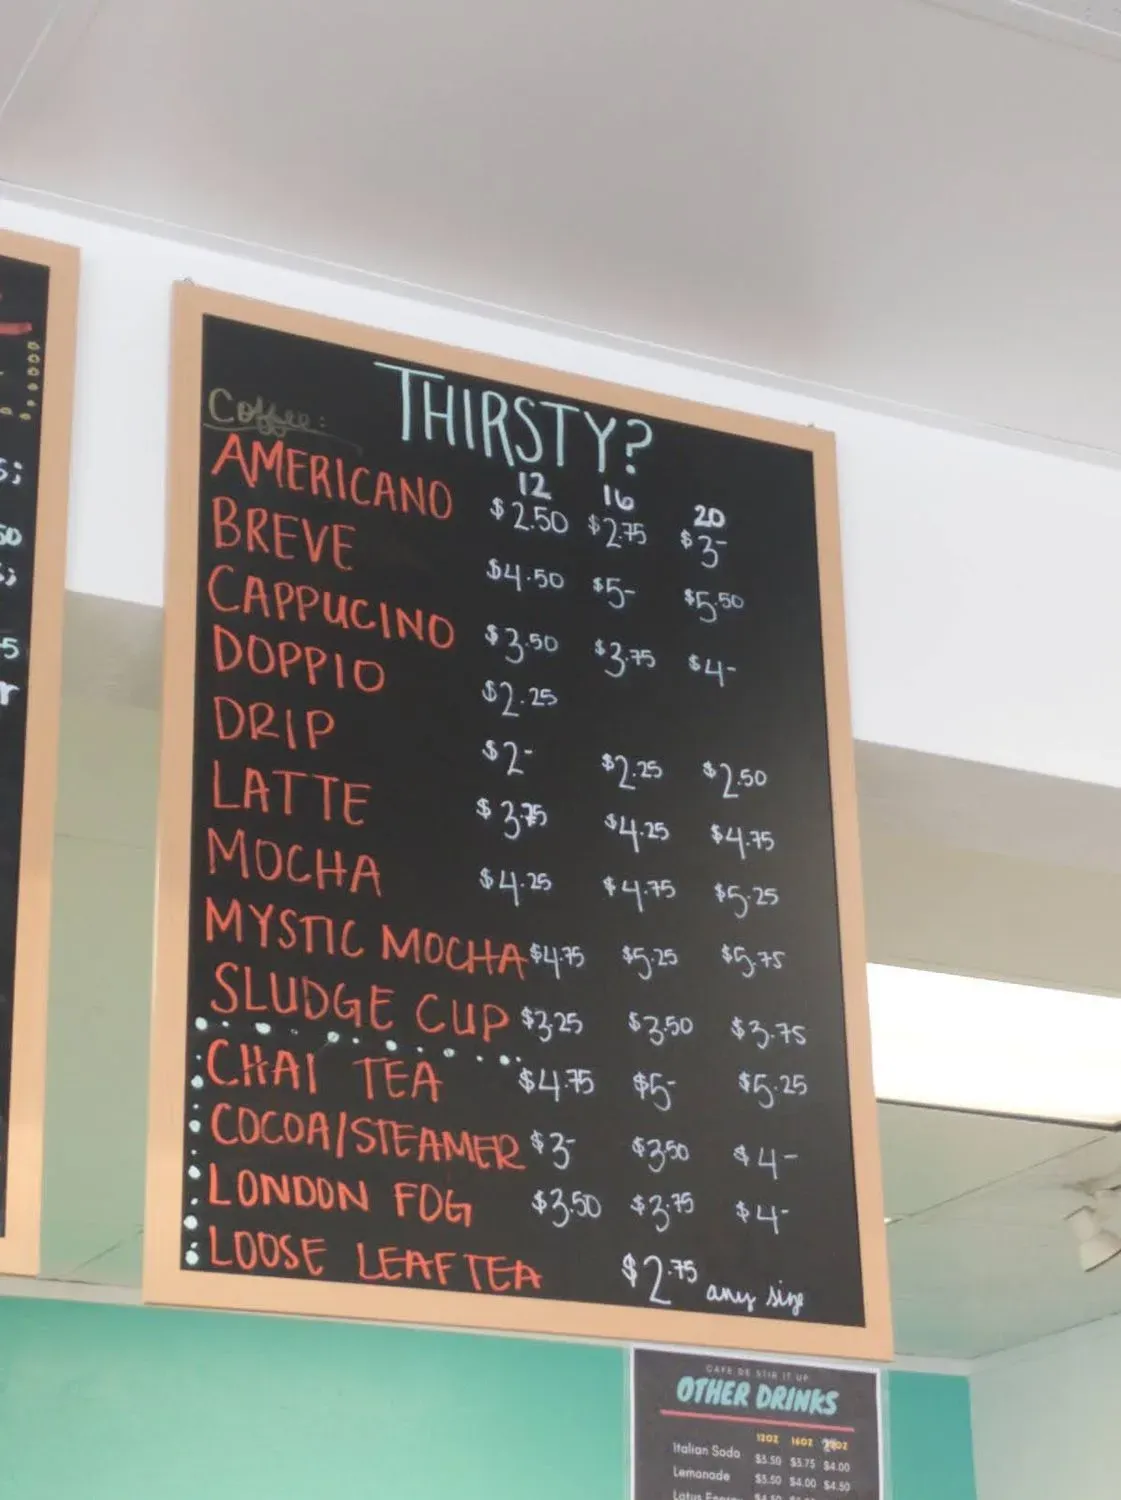 THIRSTY?
Coffee:
12 16 20
AMERICANO $2.50 $2.75 $3-
BREVE $4.50 $5- $5.50
CAPPUCINO $3.50 $3.75 $4-
DOPPIO $2.25
DRIP $2- $2.25 $2.50
LATTE $3.75 $4.25 $4.75
MOCHA $4.25 $4.75 $5.25
MYSTIC MOCHA $4.75 $5.25 $5.75
SLUDGE CUP $3.25 $3.50 $3.75
CHAI TEA $4.75 $5- $5.25
COCOA/STEAMER $3- $3.50 $4-
LONDON FOG $3.50 $3.75 $4-
LOOSE LEAF TEA $2.75 any size
CAFE DE STIR IT UP
OTHER DRINKS
12OZ 16OZ
Italian Soda $3.50 $3.75 $4.00
Lemonade $3.50 $4.00 $4.50
Lotus